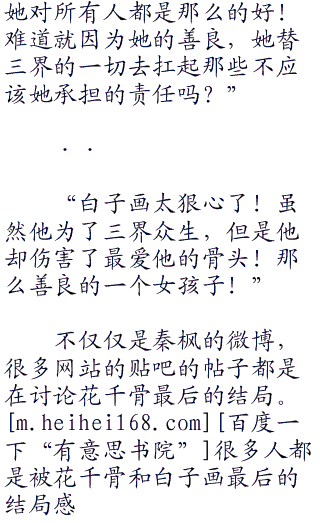 她对所有人都是那么的好！
难道就因为她的善良，她替
三界的一切去扛起那些不应
该她承担的责任吗？”
．．
“白子画太狠心了！虽
然他为了三界众生，但是他
却伤害了最爱他的骨头！那
么善良的一个女孩子！”
不仅仅是秦枫的微博，
很多网站的贴吧的帖子都是
在讨论花千骨最后的结局。
[m.heihei168.com][百度一
下“有意思书院”]很多人都
是被花千骨和白子画最后的
结局感